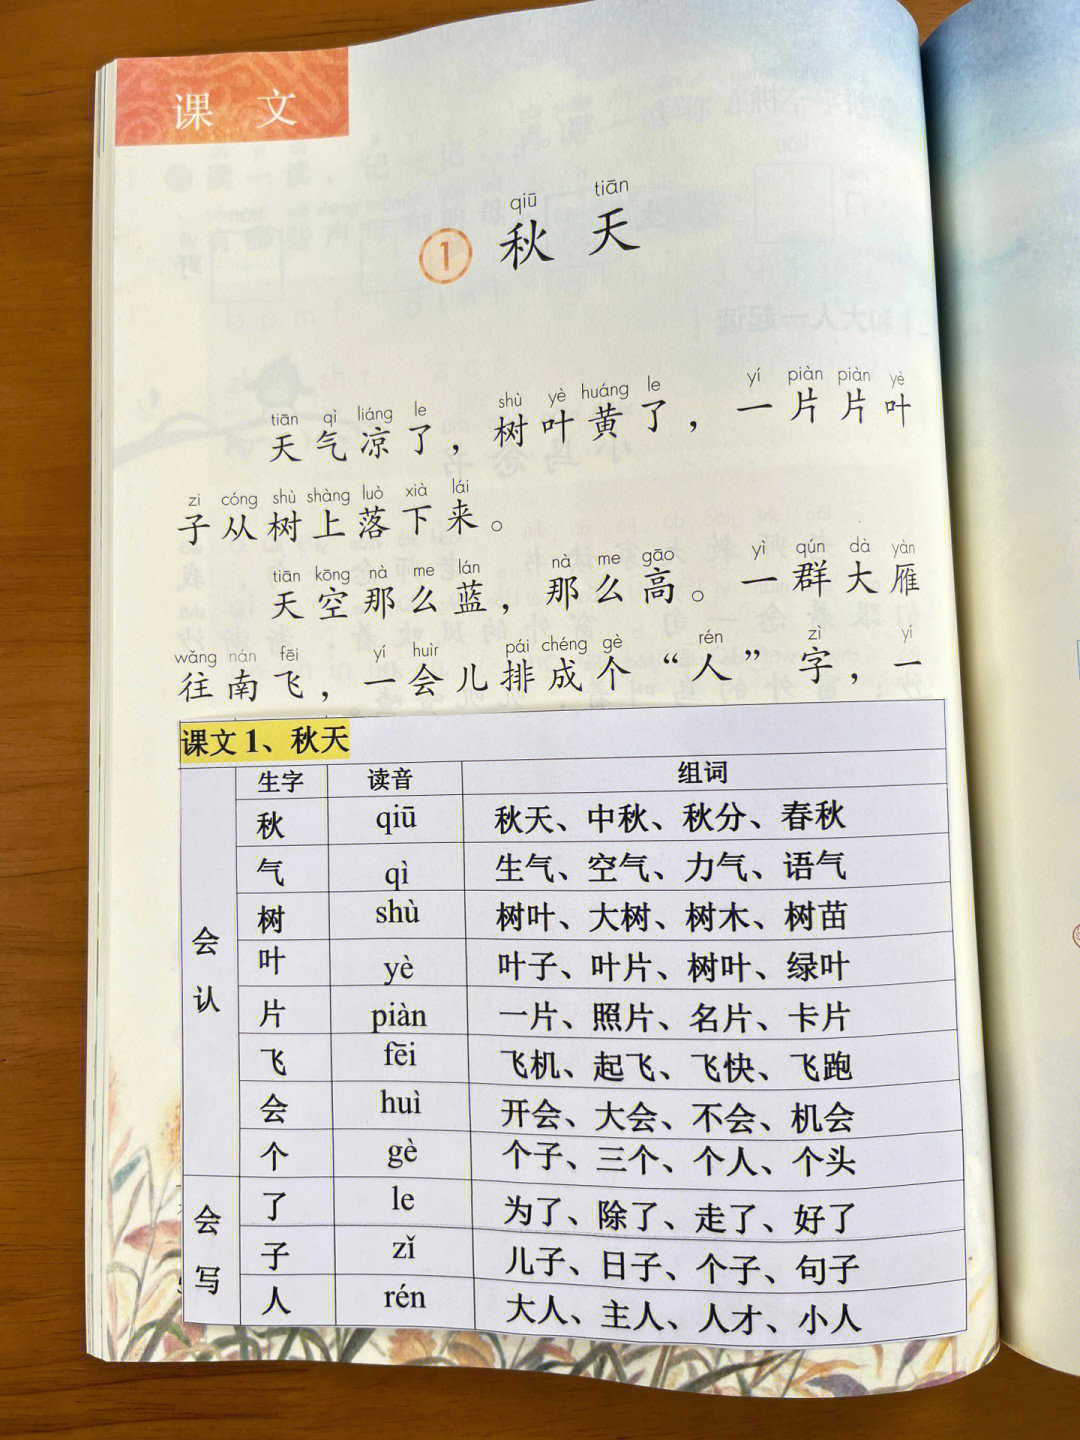 课 文
qiū tiān
1 秋 天
tiān qì liáng le shù yè huáng le yí piàn piàn yè
天 气 凉 了 ， 树 叶 黄 了 ， 一 片 片 叶
zi cóng shù shàng luò xià lái
子 从 树 上 落 下 来 。
tiān kōng nà me lán nà me gāo yì qún dà yàn
天 空 那 么 蓝 ， 那 么 高 。 一 群 大 雁
wǎng nán fēi yí huìr pái chéng gè rén zì yí
往 南 飞 ， 一 会 儿 排 成 个 “人” 字 ， 一
课文 1、秋天
生字 读音 组词
会认
秋 qiū 秋天、中秋、秋分、春秋
气 qì 生气、空气、力气、语气
树 shù 树叶、大树、树木、树苗
叶 yè 叶子、叶片、树叶、绿叶
片 piàn 一片、照片、名片、卡片
飞 fēi 飞机、起飞、飞快、飞跑
会 huì 开会、大会、不会、机会
个 gè 个子、三个、个人、个头
会写
了 le 为了、除了、走了、好了
子 zǐ 儿子、日子、个子、句子
人 rén 大人、主人、人才、小人